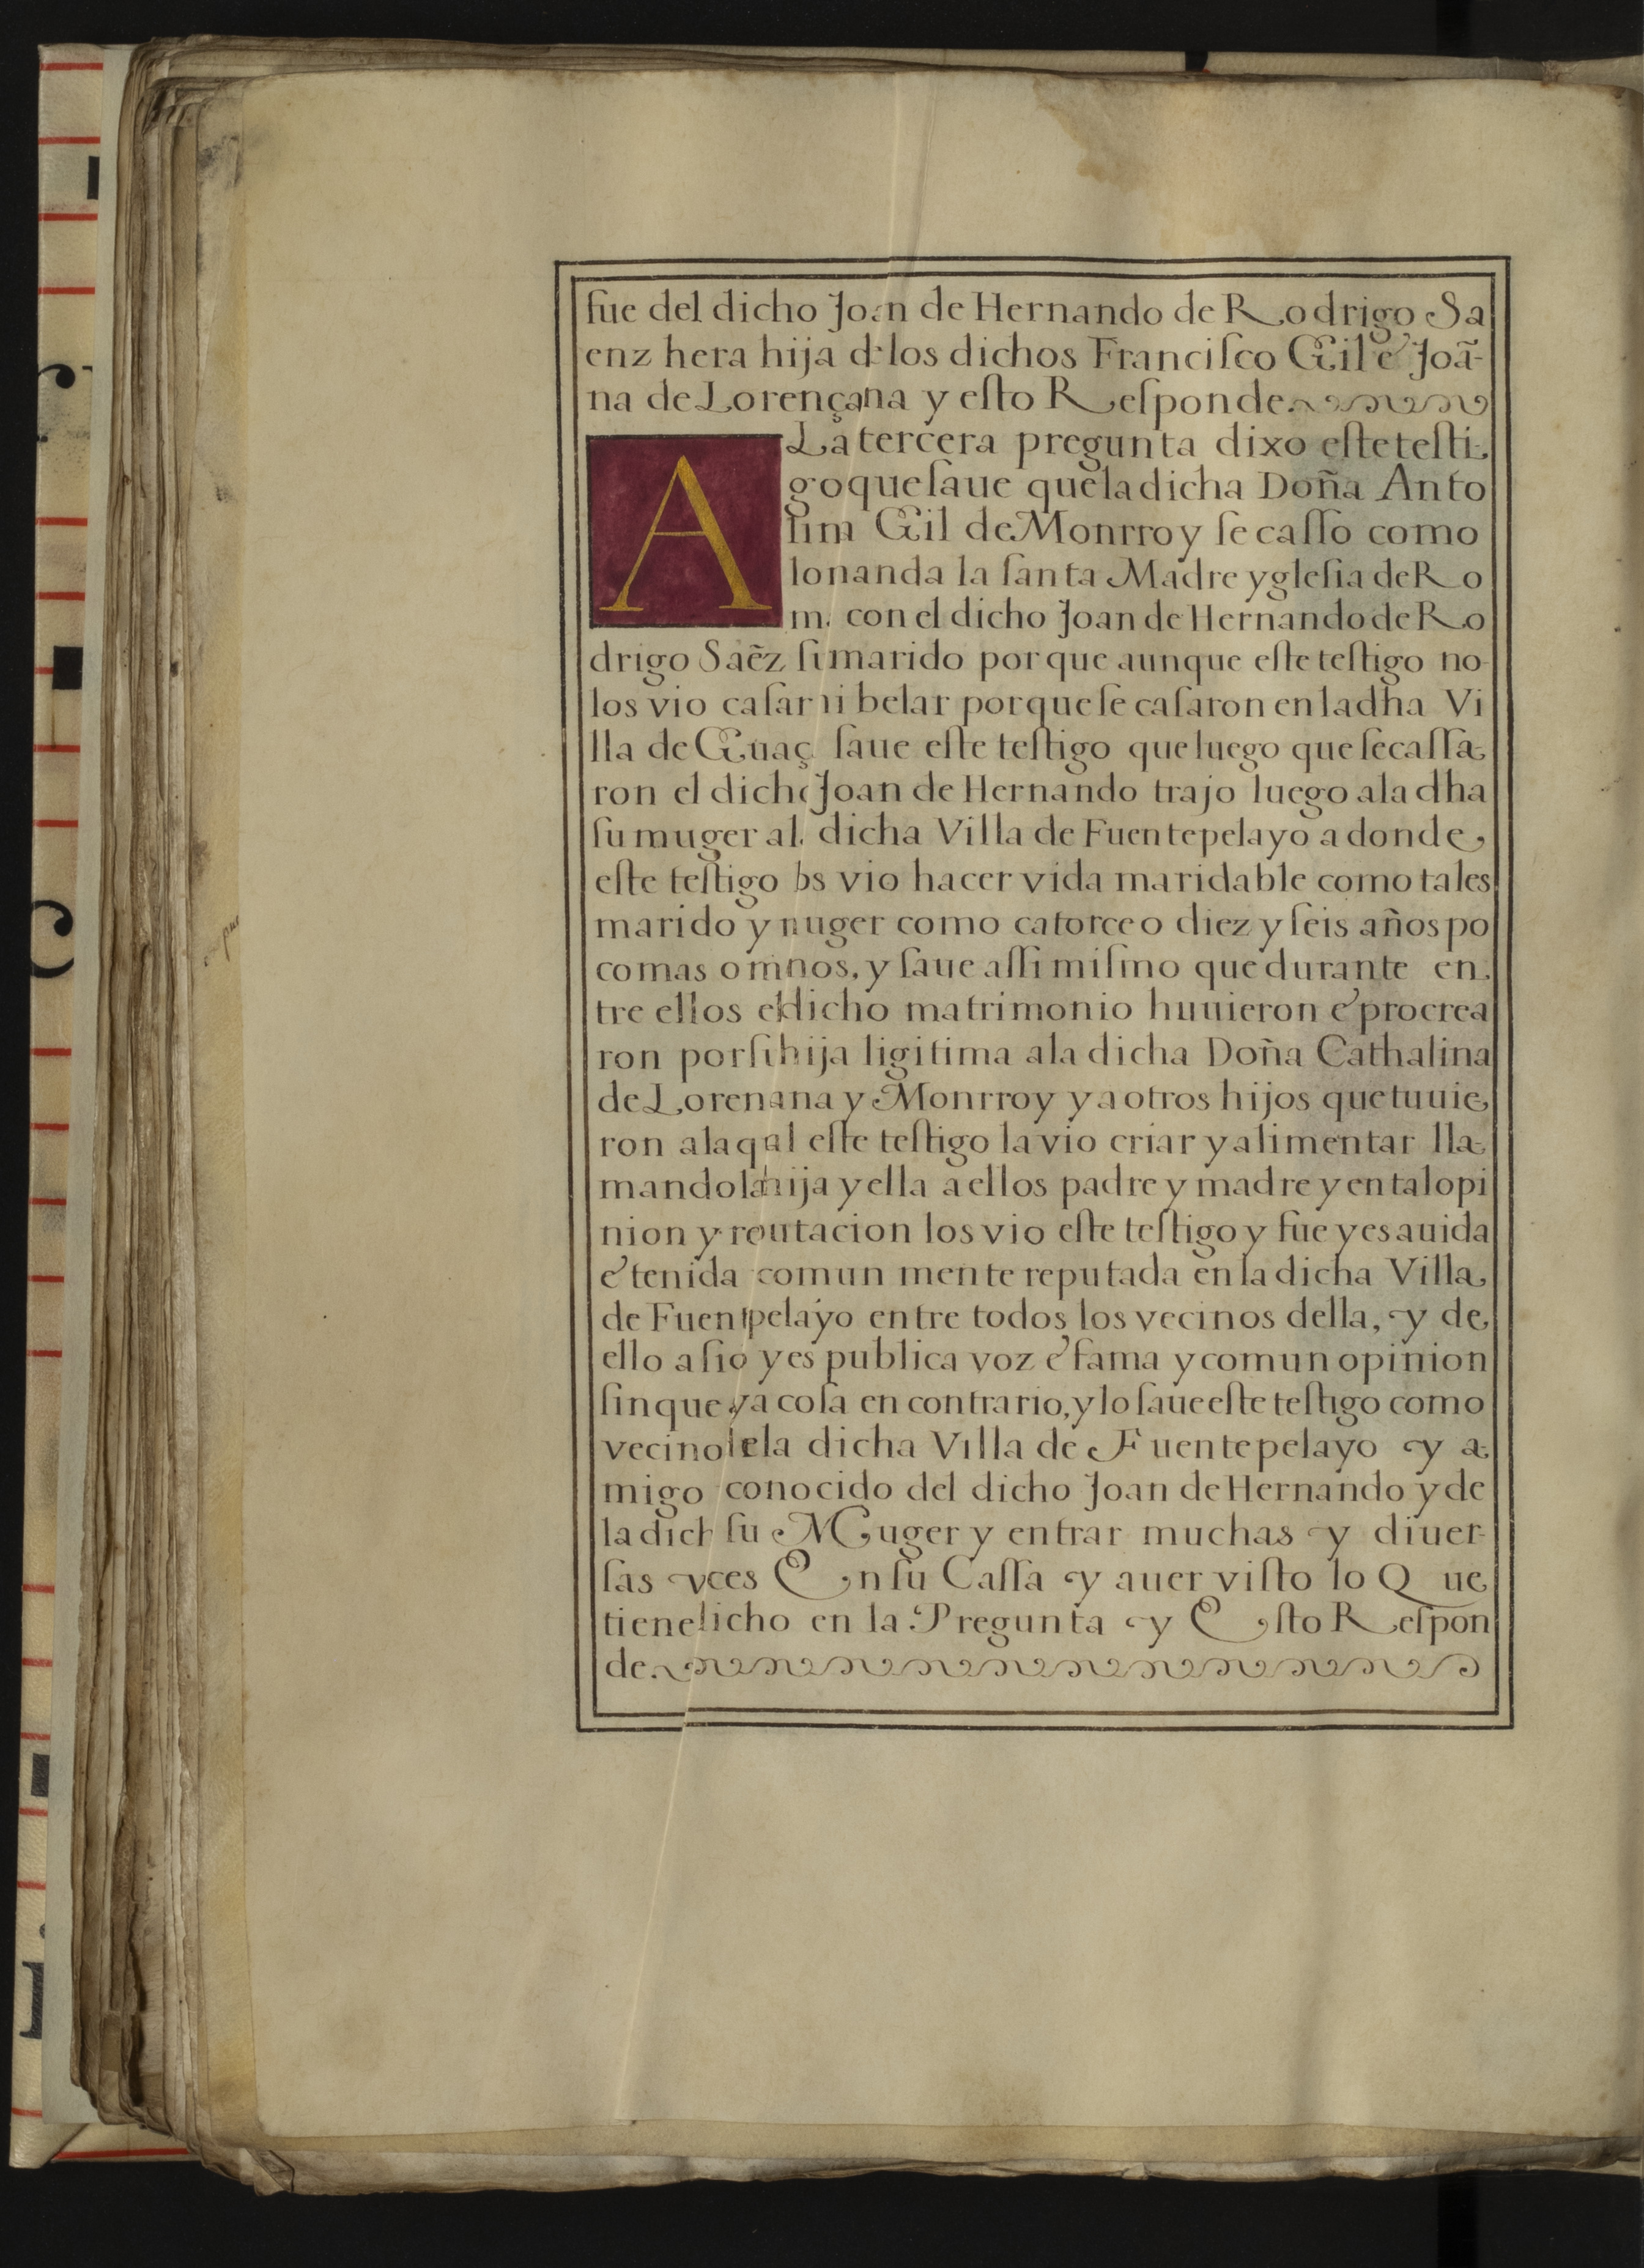 fue del dicho Joan de Hernando de Rodrigo Sa
enz hera hija de los dichos Francisco Gil e Joã-
na de Lorençana y esto Responde.
A La tercera pregunta dixo este testi
go que saue que la dicha Doña Anto
Gil de Monrroy se casso como
la santa Madre yglesia de Ro
con el dicho Joan de Hernando de Ro
drigo Saẽz su marido por que aunque este testigo no
los vio casar ni belar porque se casaron en la dha Vi
lla de saue este testigo que luego que se cassa
ron el dicho Joan de Hernando trajo luego a la dha
su muger a la dicha Villa de Fuentepelayo a donde
este testigo los vio hacer vida maridable como tales
marido y muger como catorce o diez y seis años po
co mas o menos, y saue assi mismo que durante en
tre ellos el dicho matrimonio huuieron e procrea
ron por su hija ligitima a la dicha Doña Cathalina
de Lorençana y Monrroy y a otros hijos que tuuie
ron a la qual este testigo la vio criar y alimentar lla
mandola hija y ella a ellos padre y madre y en tal opi
nion y reputacion los vio este testigo y fue y es auida
e tenida comun mente reputada en la dicha Villa
de Fuentepelayo entre todos los vecinos della, y de
ello a sido y es publica voz e fama y comun opinion
sin que aya cosa en contrario, y lo saue este testigo como
vecino de la dicha Villa de Fuentepelayo y a
migo conocido del dicho Joan de Hernando y de
la dicha su Muger y entrar muchas y diuer-
sas veces En su Cassa y auer visto lo Que
tiene dicho en la Pregunta y Esto Respon
de.